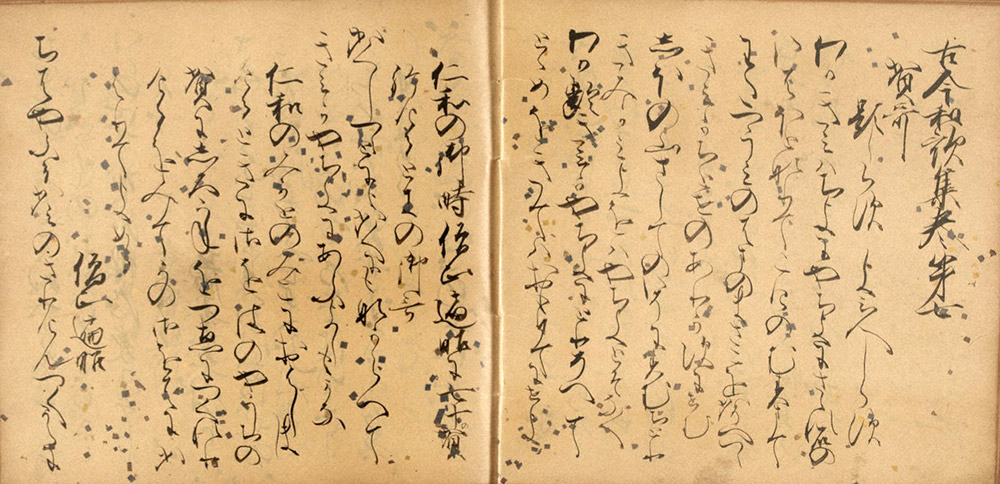 古今和歌集巻第七
賀哥
題しらす　よみ人しらす
わかきみはちよにやちよにさゝれいしの
いはほとなりてこけのむすまて
わたつうみのはまのまさこをかそへつゝ
きみかちとせのありかすにせむ
しほの山さしてのいそにすむちとり
きみかみよをはやちよとそなく
わか齢きみかやちよにとりそへて
とゝめをきてはおもひいてにせよ
仁和の御時僧正遍昭に七十賀
給けるときの御哥
かくしつゝとにもかくにもなからへて
きみかやちよにあふよしもかな
仁和のみかとのみこにおはし
けるときに御をはのやそちの
賀にしろかねをつゑにつくれり
けるをみてかの御をはにか
はりてよめる
僧正遍昭
ちはやふる神のきりけんつくからに